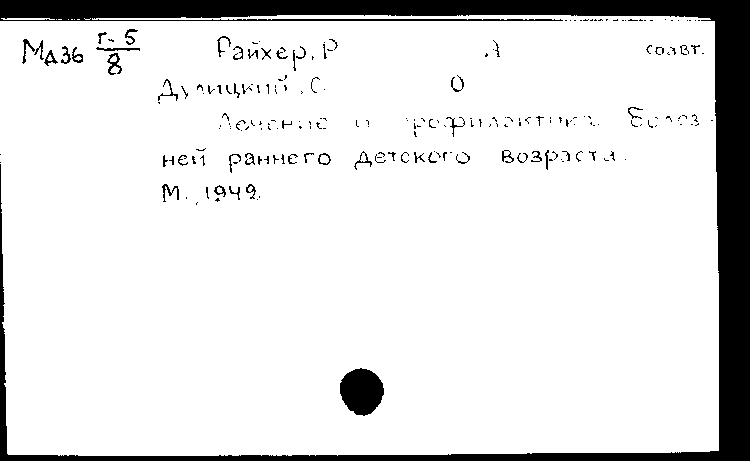 Мд36 г-5/8 Райхер, Р А соавт.
Дулицкий, С. О
Лечение и профилактика болез-
ней раннего детского возраста.
М., 1949.